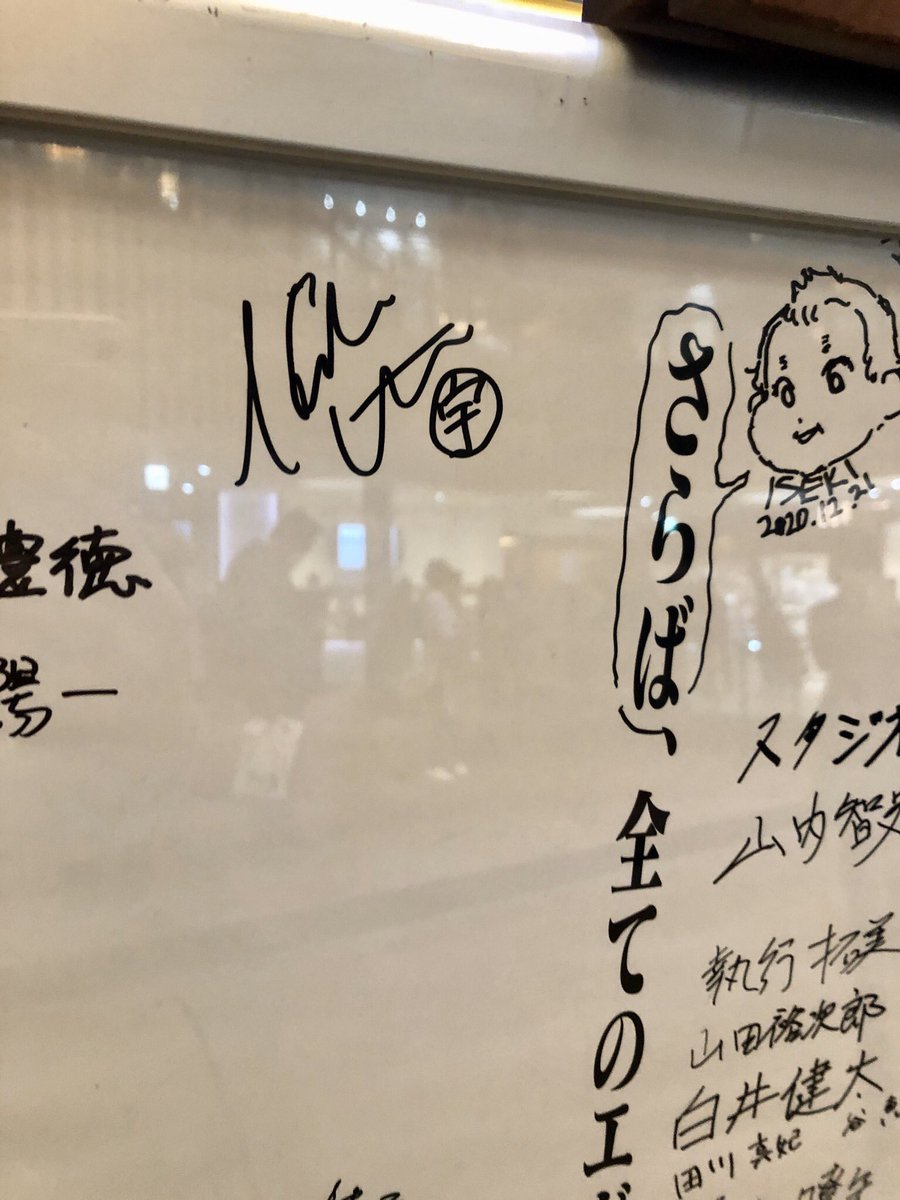 宇
さらば、全てのエ
ISEKI
2020.12.21
豊徳
陽一
スタジオ
山内智史
執行拓美
山田裕次郎
白井健太
田川真妃